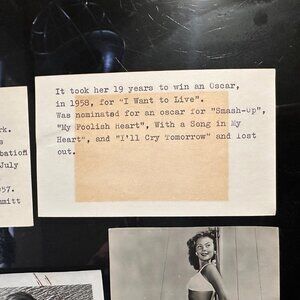 It took her 19 years to win an Oscar,
in 1958, for "I Want to Live".
Was nominated for an oscar for "Smash-up",
"My Foolish Heart", With a Song in My
Heart", and "I'll Cry Tomorrow" and lost
out.
rk.
s
bation
July
957.
mitt